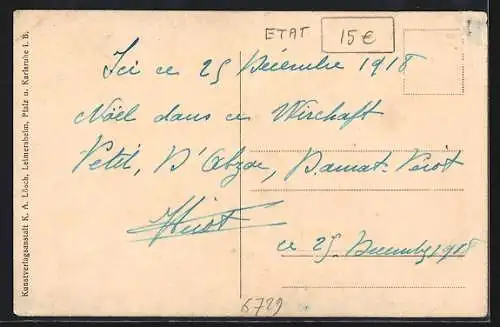 ETAT 15€
Ici ce 25 Décembre 1918
Noël dans ce Wirchaft
Petit, D'Abzac, Damat
ce 25 Décembre 1918
6729
Kunstverlagsanstalt K. A. Lösch, Leimersheim, Pfalz u. Karlsruhe i. B.